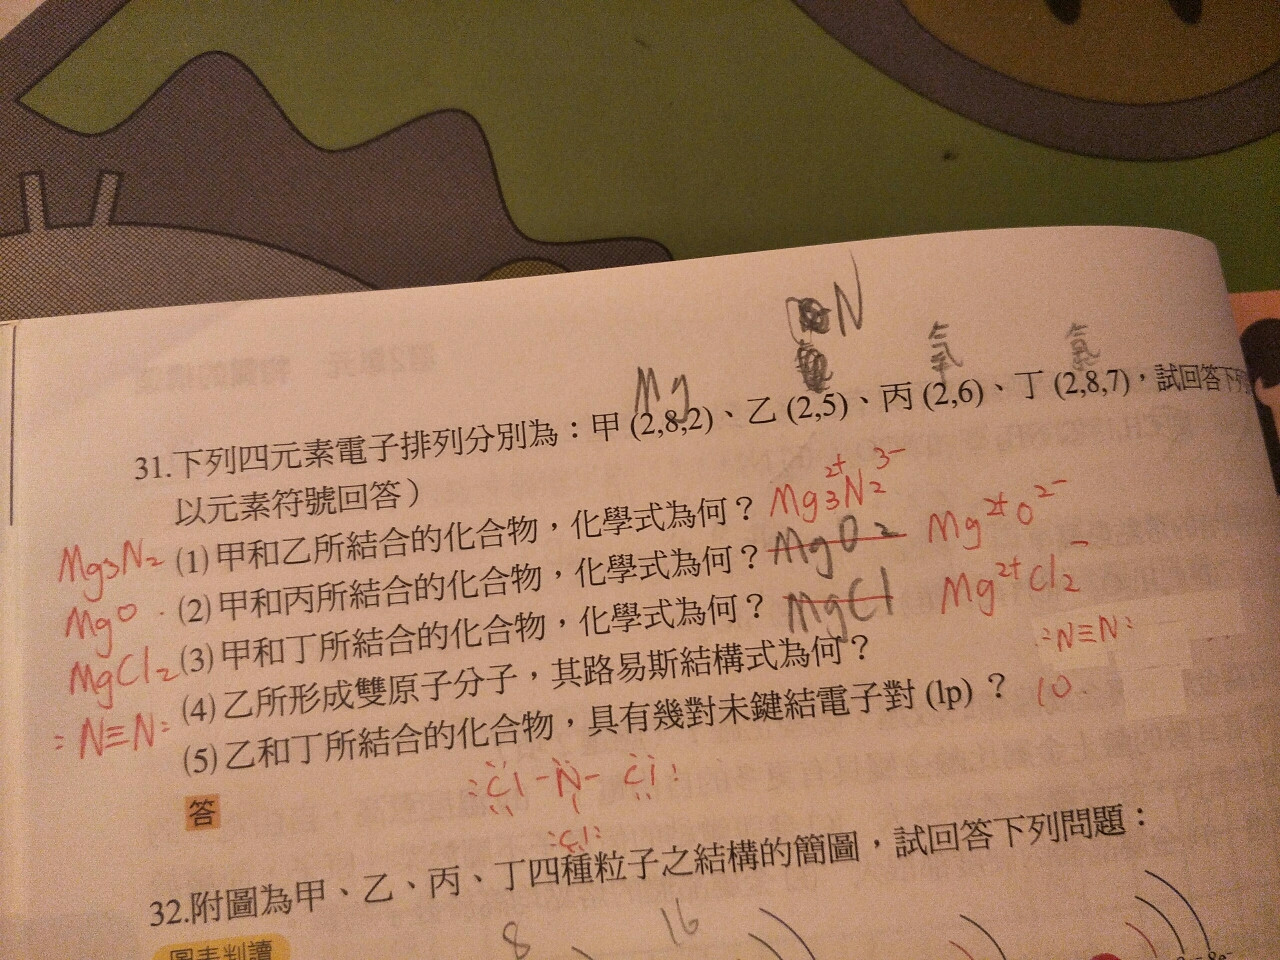 N
Mg 氧 氯
31.下列四元素電子排列分別為：甲 (2,8,2)、乙 (2,5)、丙 (2,6)、丁 (2,8,7)，試回答下列
以元素符號回答）
Mg₃N₂ (1) 甲和乙所結合的化合物，化學式為何？ Mg₃²⁺N₂³⁻
MgO (2) 甲和丙所結合的化合物，化學式為何？ MgO₂ Mg²⁺O²⁻
MgCl₂ (3) 甲和丁所結合的化合物，化學式為何？ MgCl Mg²⁺Cl₂⁻
:N≡N: (4) 乙所形成雙原子分子，其路易斯結構式為何？ :N≡N:
(5) 乙和丁所結合的化合物，具有幾對未鍵結電子對 (lp) ？ 10.
:Cl-N-Cl:
答
:Cl:
32.附圖為甲、乙、丙、丁四種粒子之結構的簡圖，試回答下列問題：
圖表判讀 8 16